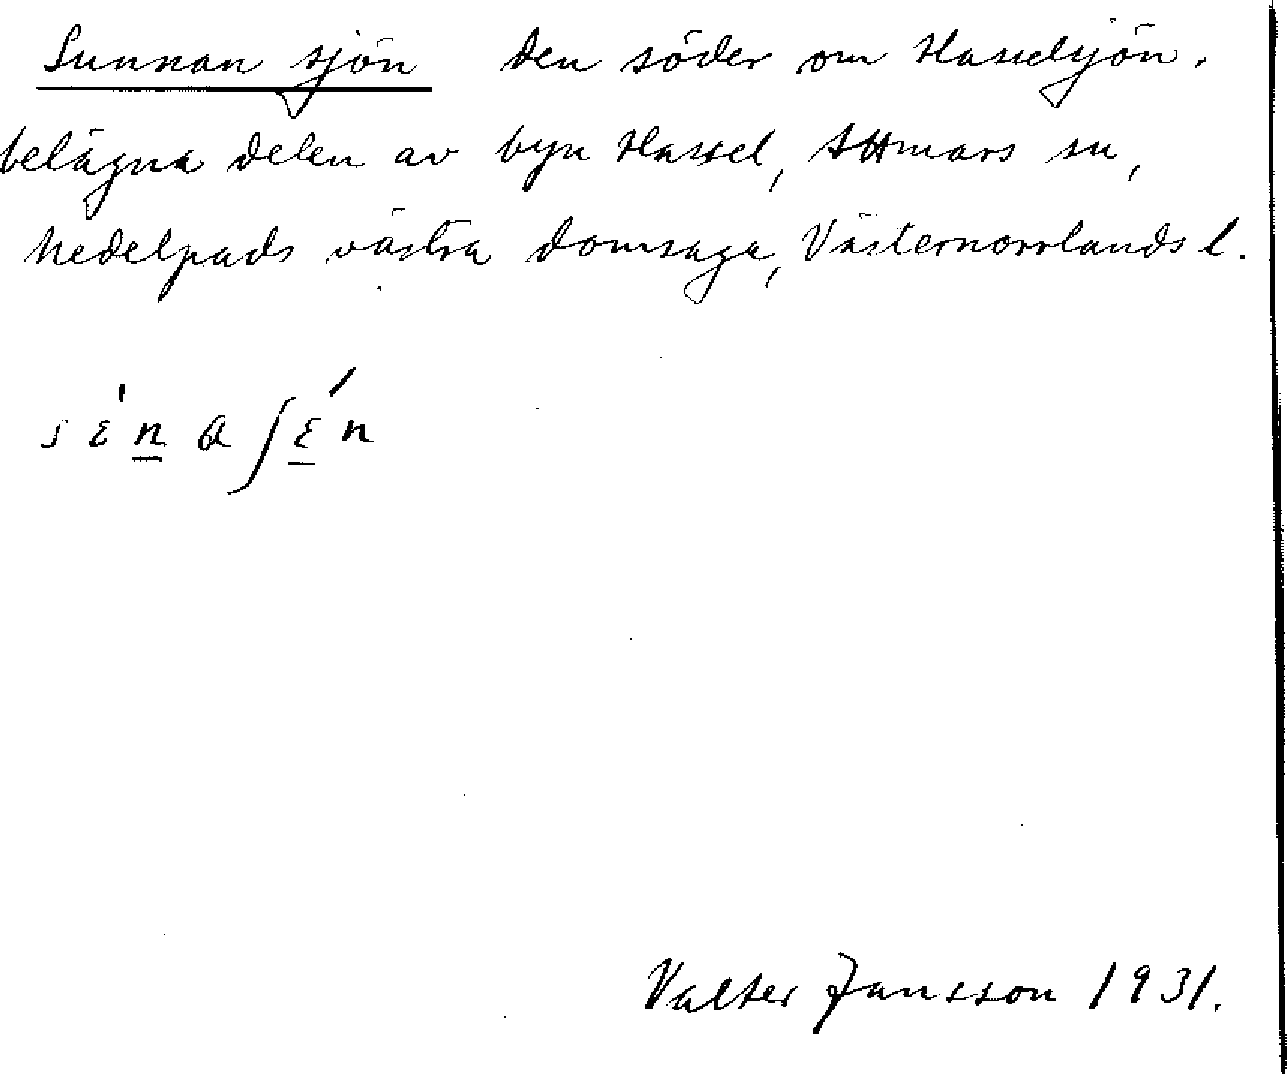 Sunnan sjön den söder om Hasselsjön.
belägna delen av byn Hassel, Attmars sn,
Medelpads västra domsaga, Västernorrlands l.
s ɛ́ n a ʃ ɛ́ n
Valter Jansson 1931.